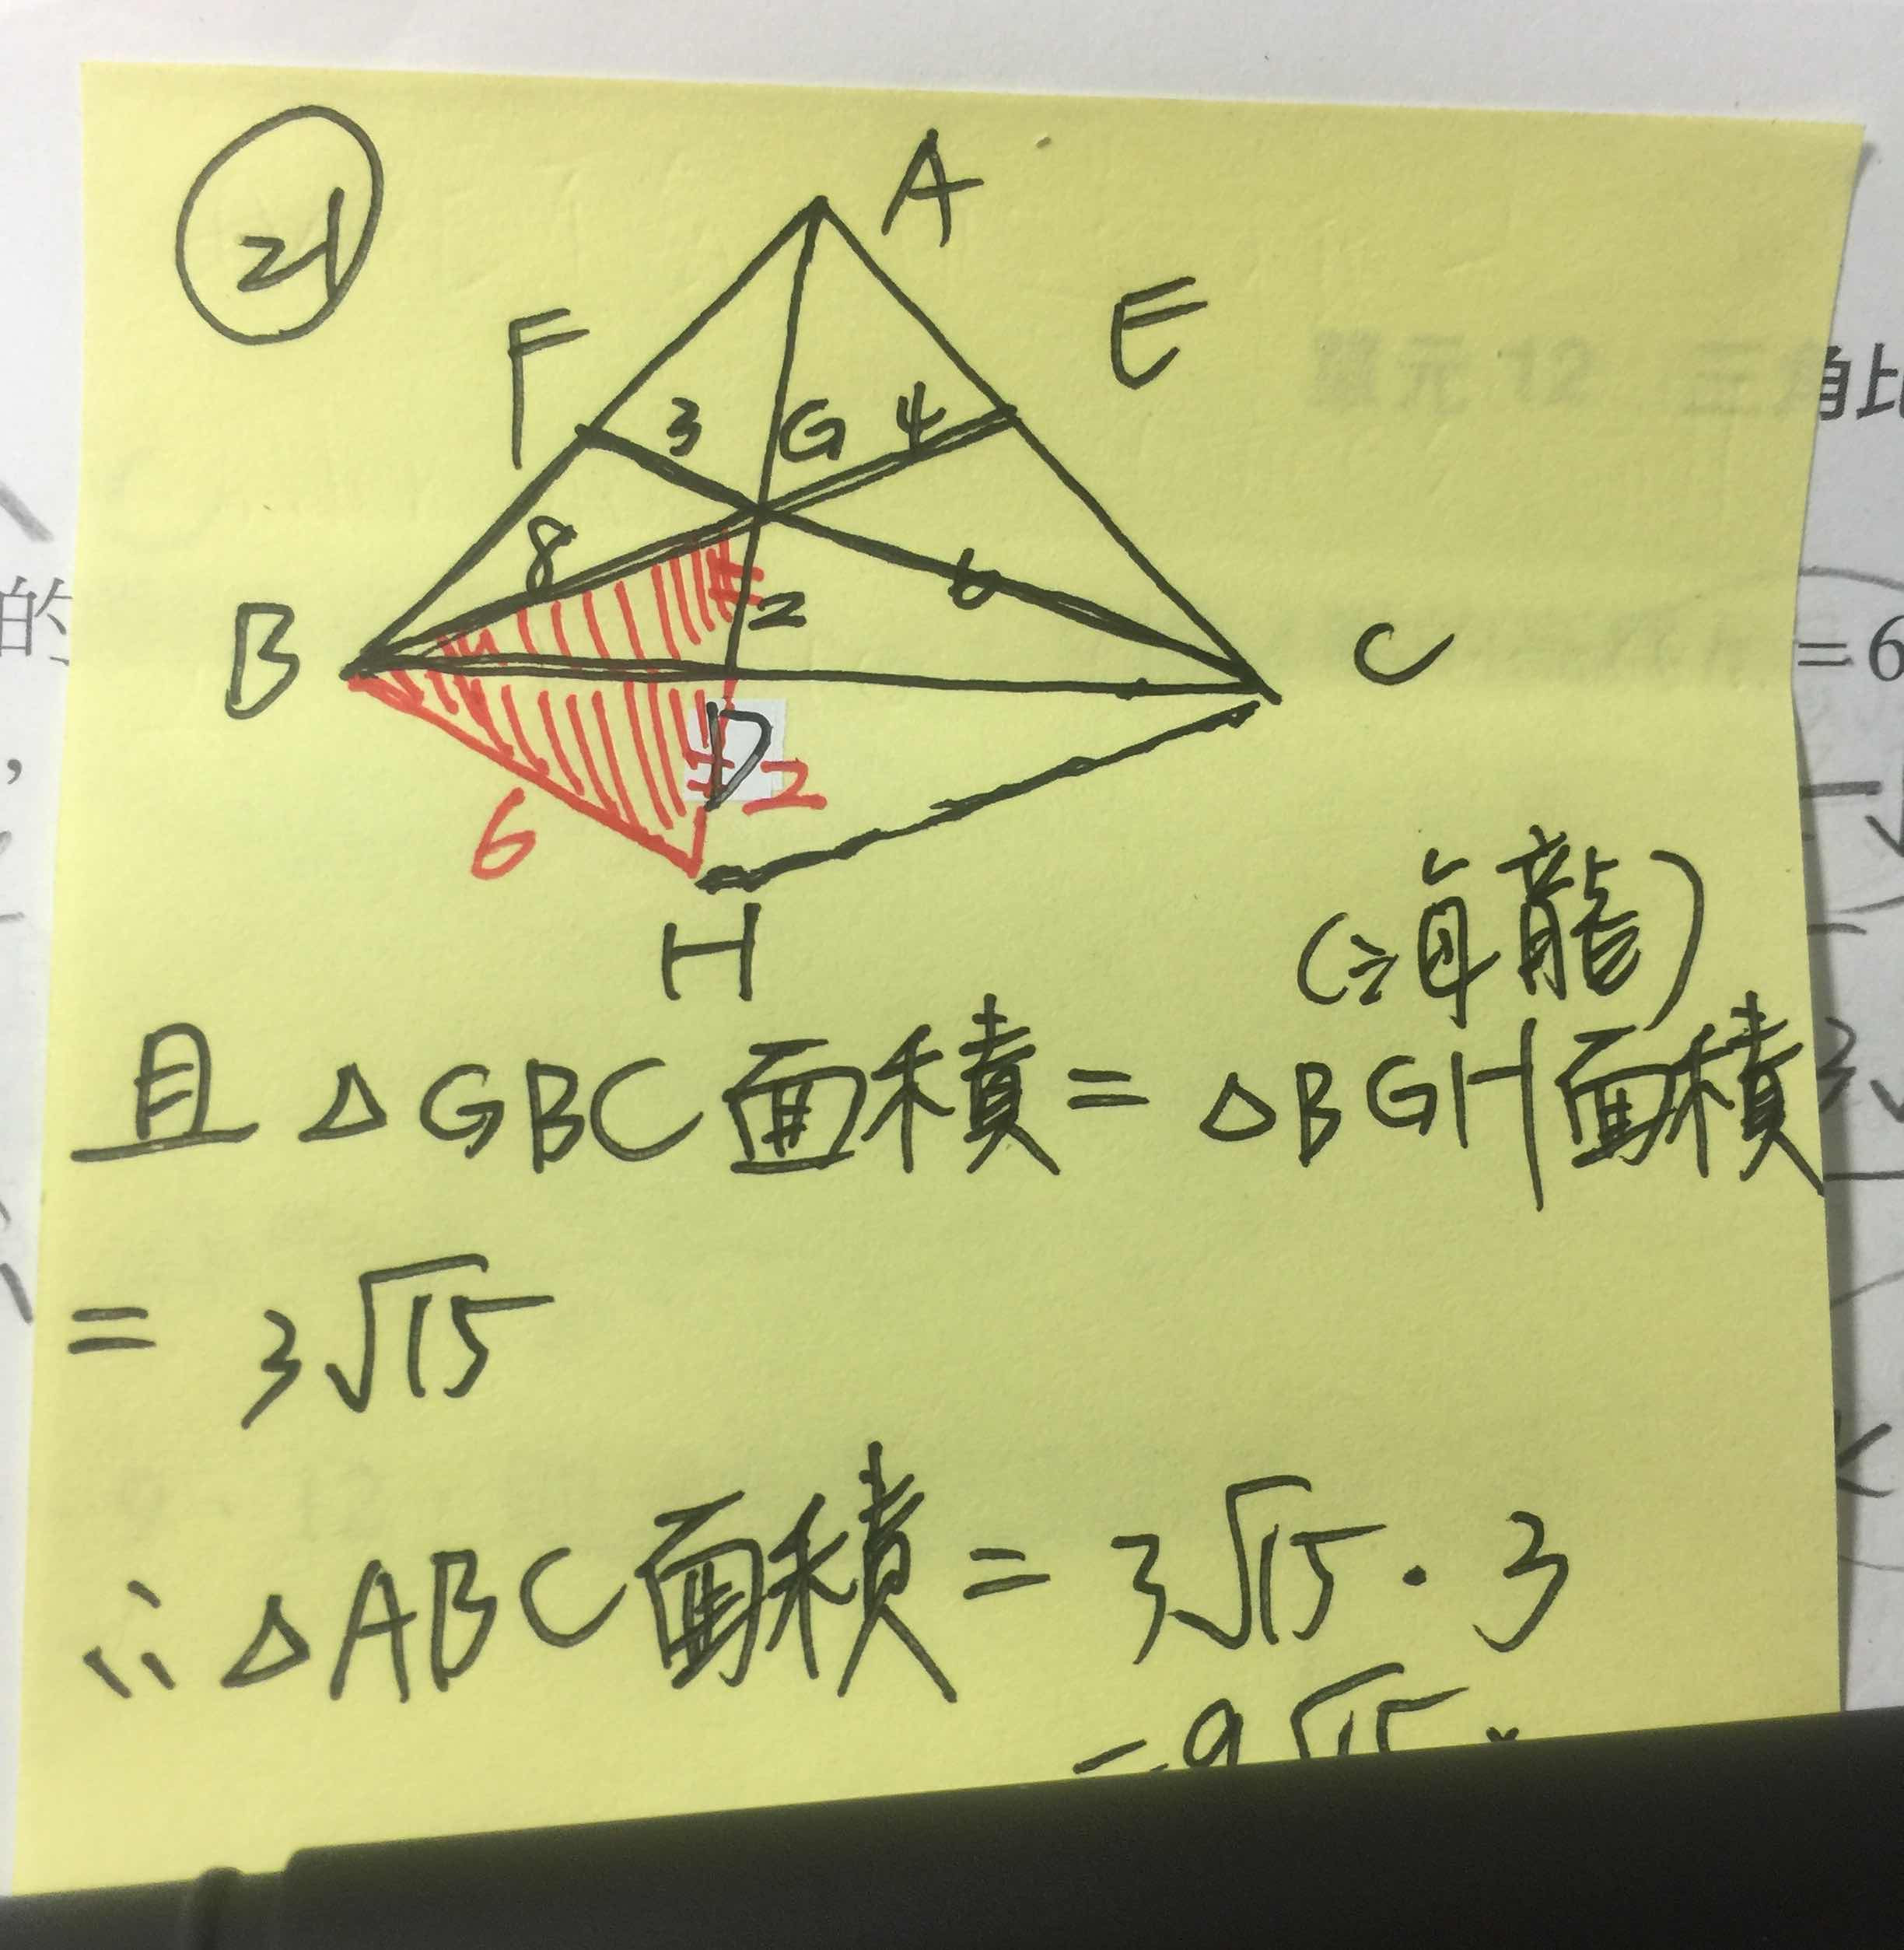 21
A
F
E
3
G
4
8
2
6
B
C
D
2
6
H
(海龍)
且 △GBC面積 = △BGH面積
= 3√15
∴ △ABC面積 = 3√15 · 3
= 9√15
單元 12 三角比
的
= 6
,